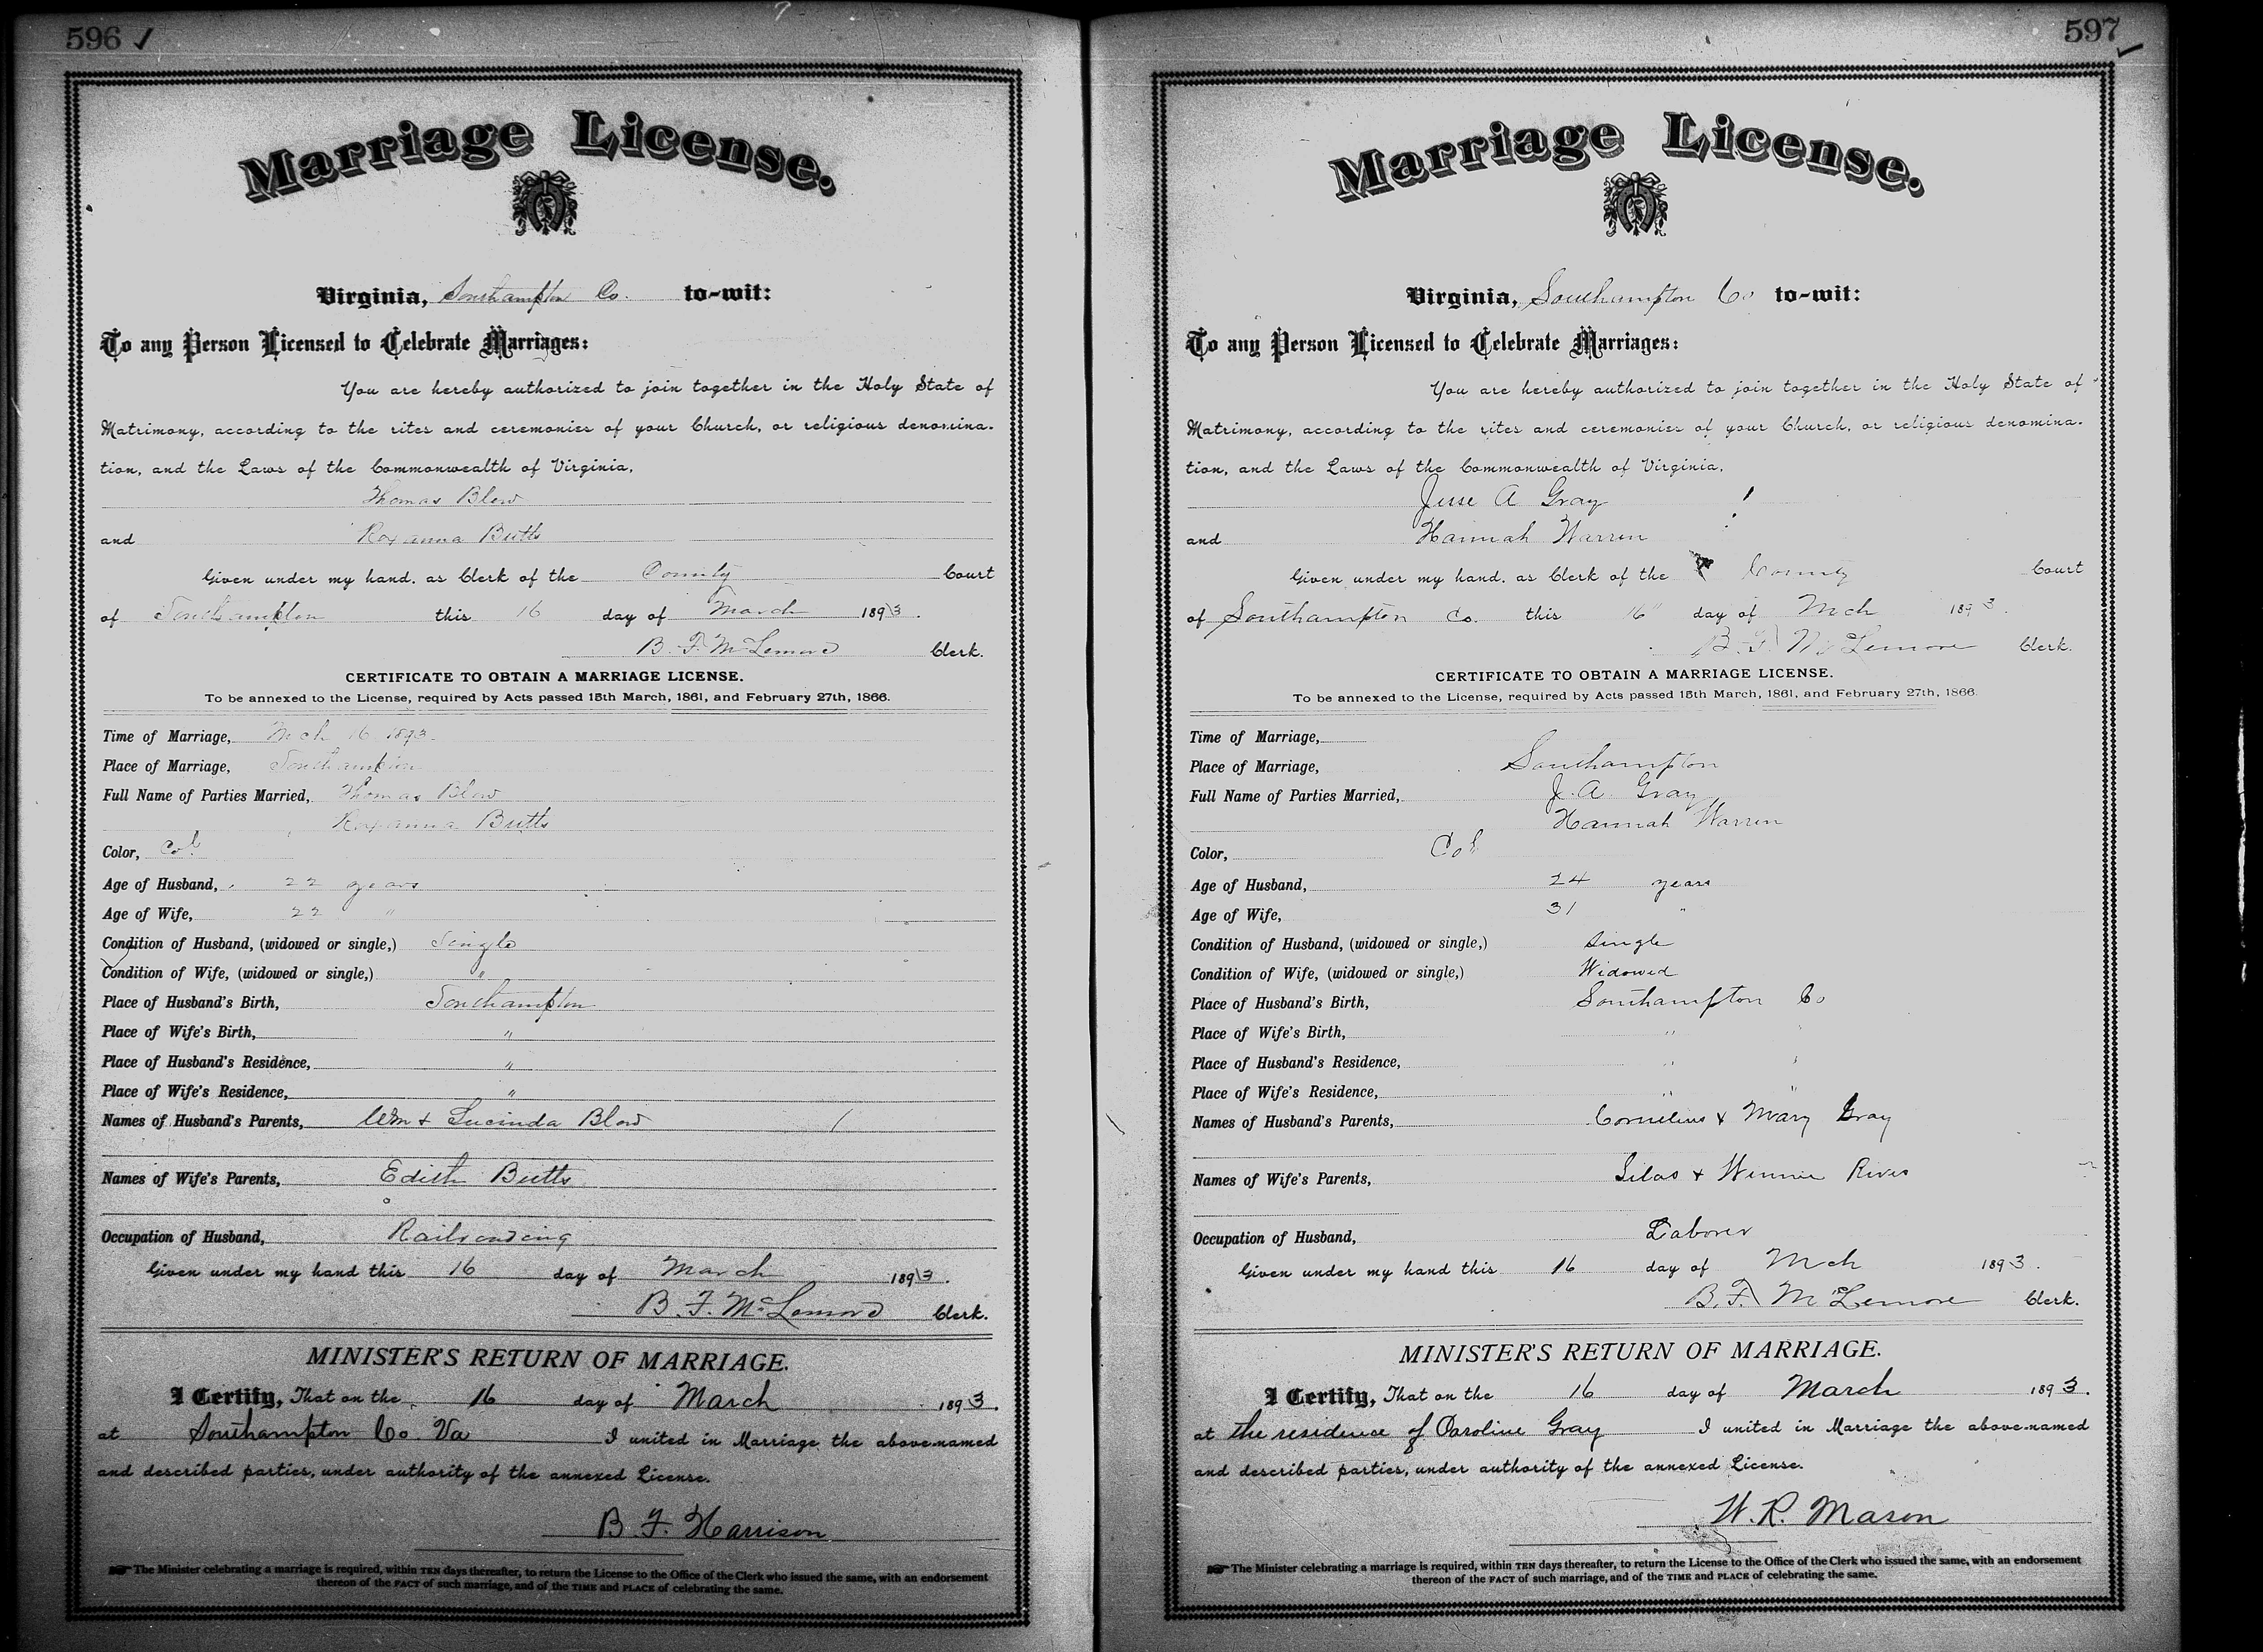 596 ✓
Marriage License.
Virginia, Southampton Co. to-wit:
To any Person Licensed to Celebrate Marriages:
You are hereby authorized to join together in the Holy State of
Matrimony, according to the rites and ceremonies of your Church, or religious denomina-
tion, and the Laws of the Commonwealth of Virginia,
Thomas Blow
and Roxanna Butts
Given under my hand, as Clerk of the County Court
of Southampton this 16 day of March 1893.
B. F. McLemore Clerk.
CERTIFICATE TO OBTAIN A MARRIAGE LICENSE.
To be annexed to the License, required by Acts passed 15th March, 1861, and February 27th, 1866.
Time of Marriage, Mch 16 1893.
Place of Marriage, Southampton
Full Name of Parties Married, Thomas Blow
Roxanna Butts
Color, Col
Age of Husband, 22 years
Age of Wife, 22 "
Condition of Husband, (widowed or single,) Single
Condition of Wife, (widowed or single,) "
Place of Husband's Birth, Southampton
Place of Wife's Birth, "
Place of Husband's Residence, "
Place of Wife's Residence, "
Names of Husband's Parents, Wm & Lucinda Blow
Names of Wife's Parents, Edith Butts
Occupation of Husband, Railroading
Given under my hand this 16 day of March 1893.
B. F. McLemore Clerk.
MINISTER'S RETURN OF MARRIAGE.
I Certify, That on the 16 day of March 1893.
at Southampton Co. Va I united in Marriage the above-named
and described parties, under authority of the annexed License.
B. F. Harrison
☛ The Minister celebrating a marriage is required, within TEN days thereafter, to return the License to the Office of the Clerk who issued the same, with an endorsement
thereon of the FACT of such marriage, and of the TIME and PLACE of celebrating the same.
597 ✓
Marriage License.
Virginia, Southampton Co to-wit:
To any Person Licensed to Celebrate Marriages:
You are hereby authorized to join together in the Holy State of
Matrimony, according to the rites and ceremonies of your Church, or religious denomina-
tion, and the Laws of the Commonwealth of Virginia,
Jesse A Gray
and Hannah Warren
Given under my hand, as Clerk of the County Court
of Southampton Co. this 16" day of Mch 1893.
B. F. McLemore Clerk.
CERTIFICATE TO OBTAIN A MARRIAGE LICENSE.
To be annexed to the License, required by Acts passed 15th March, 1861, and February 27th, 1866.
Time of Marriage,
Place of Marriage, Southampton
Full Name of Parties Married, J. A. Gray
Hannah Warren
Color, Col
Age of Husband, 24 years
Age of Wife, 31 "
Condition of Husband, (widowed or single,) single
Condition of Wife, (widowed or single,) Widowed
Place of Husband's Birth, Southampton Co
Place of Wife's Birth, " "
Place of Husband's Residence, " "
Place of Wife's Residence, " "
Names of Husband's Parents, Cornelius & Mary Gray
Names of Wife's Parents, Silas & Winnie Rives
Occupation of Husband, Laborer
Given under my hand this 16 day of Mch 1893.
B. F. McLemore Clerk.
MINISTER'S RETURN OF MARRIAGE.
I Certify, That on the 16 day of March 1893.
at the residence of Caroline Gray I united in Marriage the above-named
and described parties, under authority of the annexed License.
W. R. Mason
☛ The Minister celebrating a marriage is required, within TEN days thereafter, to return the License to the Office of the Clerk who issued the same, with an endorsement
thereon of the FACT of such marriage, and of the TIME and PLACE of celebrating the same.